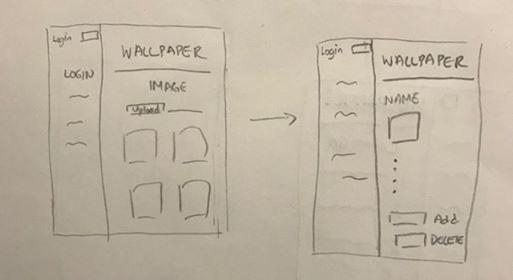 Login
WALLPAPER
LOGIN
IMAGE
Upload
Login
WALLPAPER
NAME
Add
DELETE